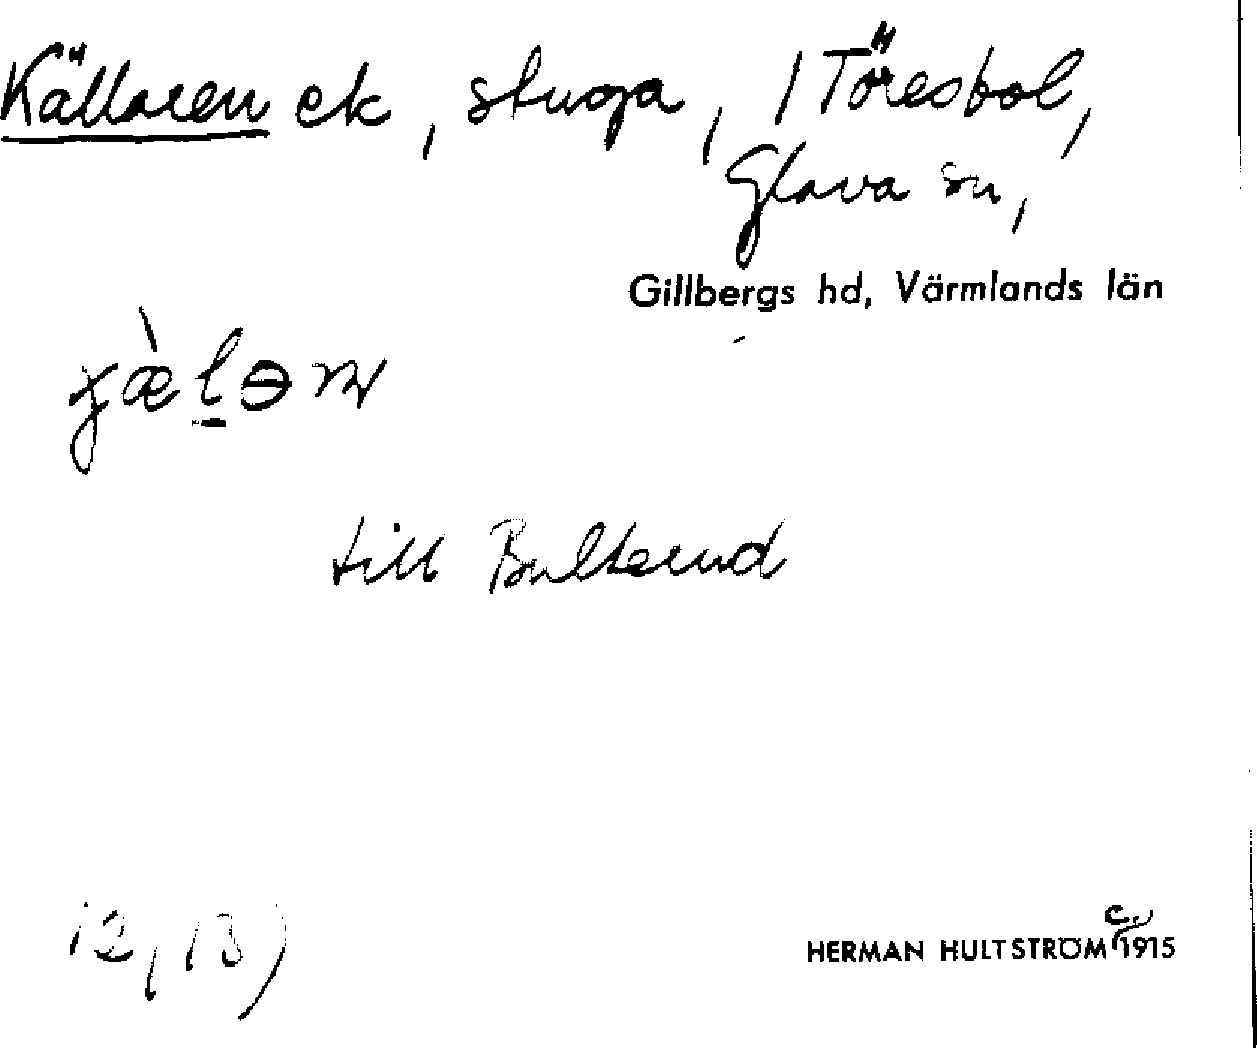 Källaren ek, stuga, / Töresbol,
Glava sn,
Gillbergs hd, Värmlands län
till Bulterud
12, 13)
HERMAN HULTSTRÖM c. 1915